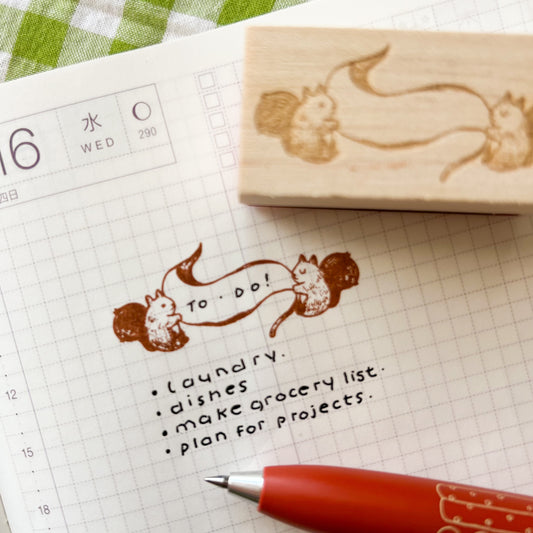 16
水
WED
290
四日
TO · DO!
• laundry.
• dishes
• make grocery list.
• plan for projects.
12
15
18